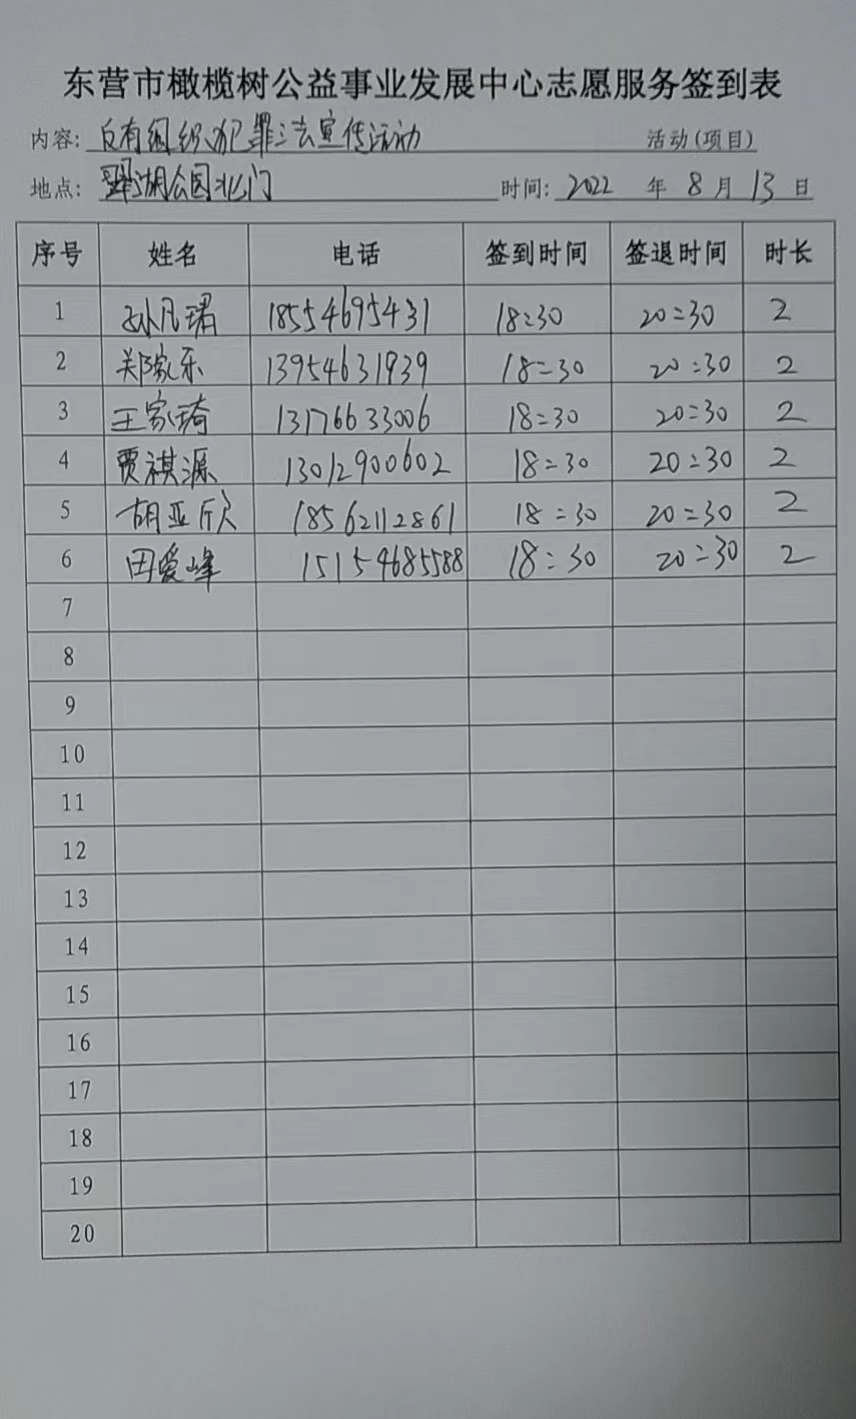 东营市橄榄树公益事业发展中心志愿服务签到表
内容: 反有组织犯罪法宣传活动 活动(项目)
地点: 翠湖公园北门 时间: 2022 年 8 月 13 日
序号 姓名 电话 签到时间 签退时间 时长
1 孙凡珺 18554695431 18:30 20:30 2
2 郑家乐 13954631939 18:30 20:30 2
3 王家琦 13176633006 18:30 20:30 2
4 贾祺源 13012900602 18:30 20:30 2
5 胡亚欣 18562112861 18:30 20:30 2
6 田爱峰 15154685588 18:30 20:30 2
7
8
9
10
11
12
13
14
15
16
17
18
19
20